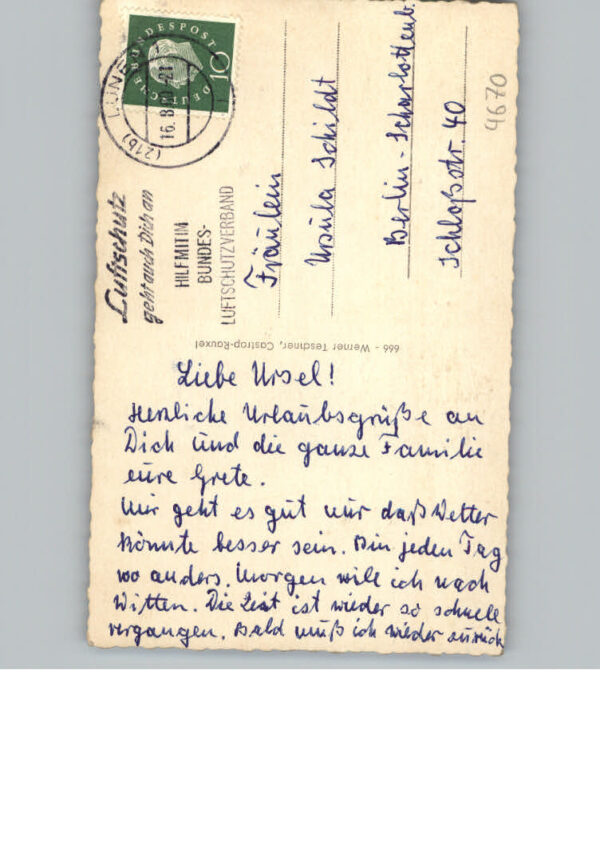 DEUTSCHE BUNDESPOST
10
LÜNEN
16.8.60
(21b)
Luftschutz
geht auch Dich an
HILF MIT IM
BUNDES-
LUFTSCHUTZVERBAND
Fräulein
Ursula Schildt
Berlin-Scharlottenb.
Schloßstr. 40
4670
666 - Werner Teschner, Castrop-Rauxel
Liebe Ursel!
Herzliche Urlaubsgrüße an
Dich und die ganze Familie
eure Grete.
Mir geht es gut nur daß Wetter
könnte besser sein. Bin jeden Tag
wo anders. Morgen will ich nach
Witten. Die Zeit ist wieder so schnell
vergangen. Bald muß ich wieder zurück